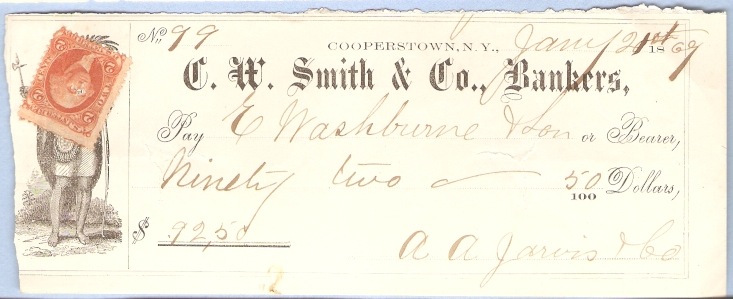 No. 99
COOPERSTOWN, N.Y., Jany 21st 1869
C. W. Smith & Co., Bankers,
Pay E Washburne & Son or Bearer,
Ninety two 50/100 Dollars,
$ 92,50
A. A. Jarvis & Co